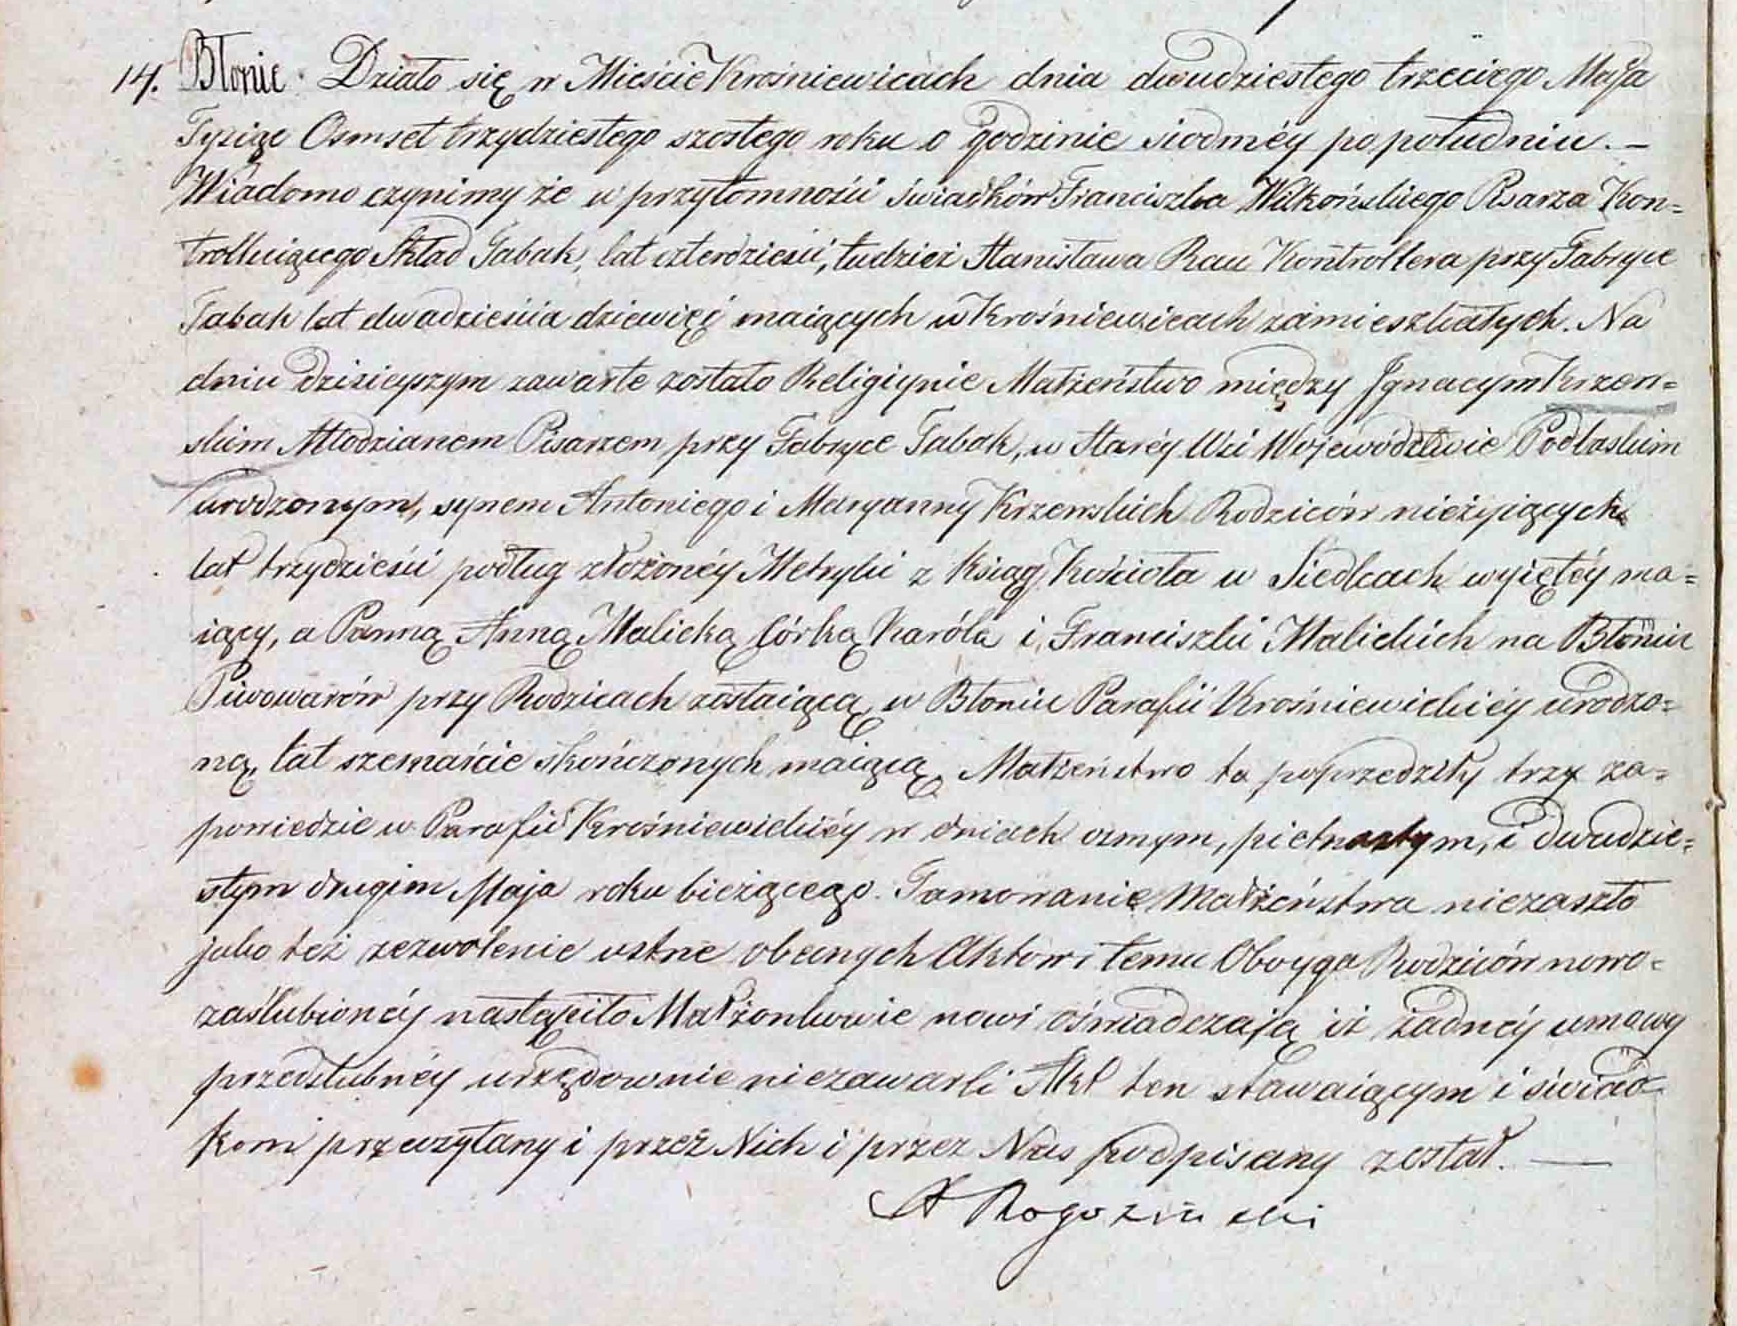 14. Błonie. Działo się w Mieście Krośniewicach dnia dwudziestego trzeciego Maja
Tysiąc Osmset trzydziestego szostego roku o godzinie siodméy po południu. —
Wiadomo czynimy że w przytomności świadków Franciszka Wilkońskiego Pisarza Kon=
trolluiącego Skład Tabak, lat czterdzieści, tudzież Stanisława Rau Kontrollera przy Fabryce
Tabak lat dwadzieścia dziewięć maiących w Krośniewicach zamieszkałych. Na
dniu dzisieyszym zawarte zostało Religiynie Małżeństwo między Ignacym Krzew=
skim Młodzianem Pisarzem przy Fabryce Tabak, w Staréy Wsi Województwie Podlaskim
urodzonym, synem Antoniego i Maryanny Krzewskich Rodziców nieżyiących
lat trzydzieści podług złożonéy Metryki z Ksiąg Kościoła w Siedlcach wyiętéy ma=
iący, a Panną Anną Malicką córką Karóla i Franciszki Malickich na Błoniu
Piwowarów przy Rodzicach zostaiącą w Błoniu Parafii Krośniewickiéy urodzo=
ną, lat szesnaście skończonych maiącą. Małżeństwo to poprzedziły trzy za=
powiedzie w Parafii Krośniewickiéy w dniach osmym, pietnastym, i dwudzie=
stym drugim Maja roku bieżącego. Tamowanie Małżeństwa niezaszło
jako też zezwolenie ustne obecnych Aktowi temu Oboyga Rodziców nowo=
zaślubionéy nastąpiło Małżonkowie nowi oświadczają iż żadnéy umowy
przedślubnéy urzędownie niezawarli Akt ten stawaiącym i świad=
kom przeczytany i przez Nich i przez Nas podpisany został. —
A Rogoziński